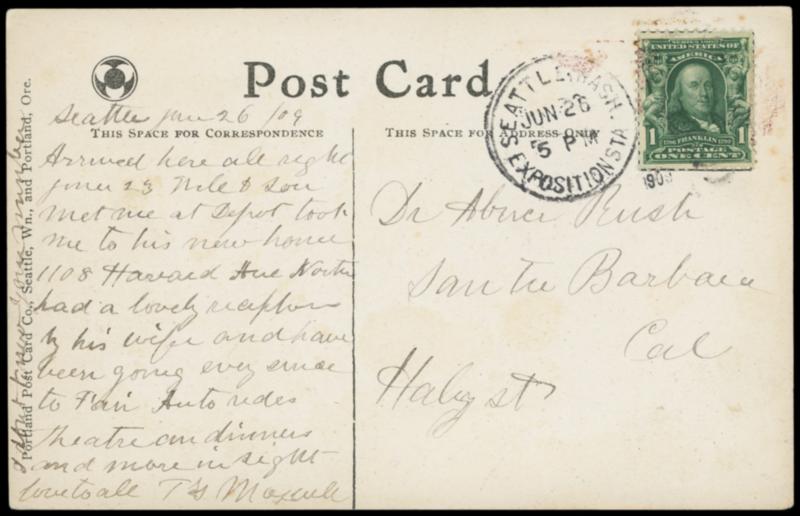 Post Card
THIS SPACE FOR CORRESPONDENCE
THIS SPACE FOR ADDRESS ONLY
Portland Post Card Co., Seattle, Wn., and Portland, Ore.
Seattle June 26 /09
Arrived here all right
June 23 Nile & Son
Met me at Depot took
me to his new home
1108 Harvard Ave North
had a lovely reception
by his wife and have
been going ever since
to Fair Auto rides
theatre an dinners
and more in sight
love to all T G Maxwell
number
SEATTLE, WASH.
JUN 26
5 PM
EXPOSITION STA
1909
SERIES 1902
UNITED STATES OF
AMERICA
1706 FRANKLIN 1790
1 1
POSTAGE
ONE CENT
Dr Abner Rush
Santa Barbara
Cal
Haley st